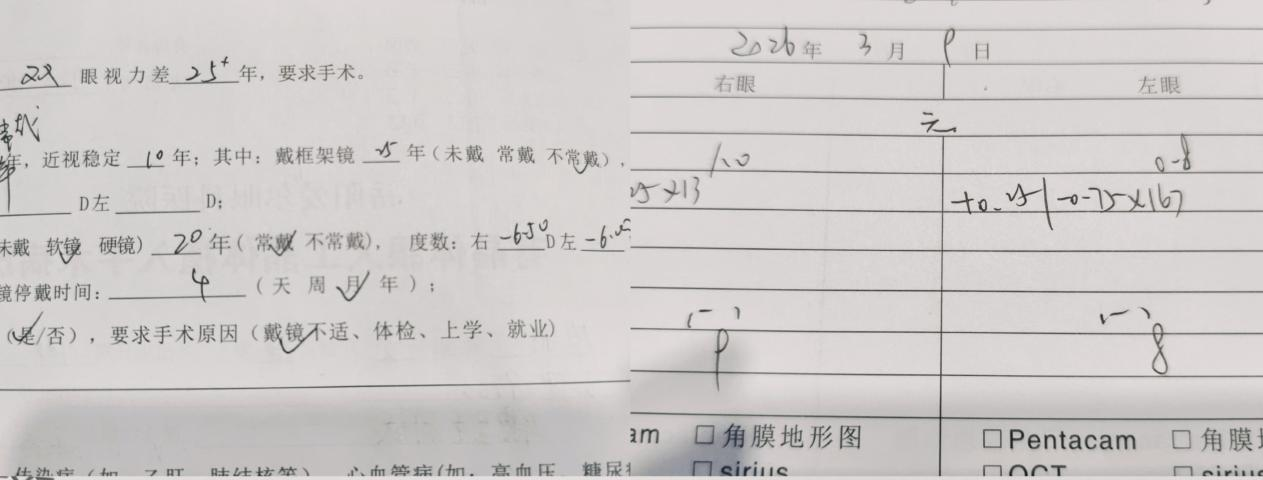 双 眼视力差 25+ 年，要求手术。
年，近视稳定 10 年；其中：戴框架镜 25 年（未戴 常戴 不常戴），
D左 D；
未戴 软镜 硬镜） 20 年（ 常戴 不常戴）， 度数：右 -6.50 D左 -6.0
镜停戴时间： 4 （天 周 月 年）；
（是/否），要求手术原因（戴镜不适、体检、上学、就业）
传染病（如：乙肝、肺结核等）、心血管病(如：高血压、糖尿
2026年 3月 9日
右眼 左眼
无
1.0 0.8
25×13 +0.25/-0.75×167
9 8
am □角膜地形图 □Pentacam □角膜
□sirius □OCT □sirius